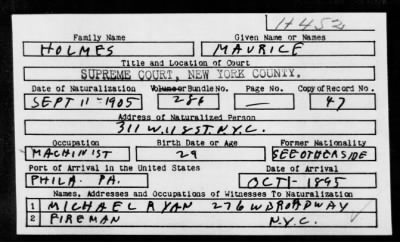 H452
Family Name Given Name or Names
HOLMES MAURICE
Title and Location of Court
SUPREME COURT, NEW YORK COUNTY.
Date of Naturalization Volume or Bundle No. Page No. Copy of Record No.
SEPT 11-1905 286 — 47
Address of Naturalized Person
311 W. 118 ST. N.Y.C.
Occupation Birth Date or Age Former Nationality
MACHINIST 29 SEE OTHER SIDE
Port of Arrival in the United States Date of Arrival
PHILA. PA. OCT 1-1895
Names, Addresses and Occupations of Witnesses To Naturalization
1 MICHAEL RYAN 276 W BROADWAY
2 FIREMAN N.Y.C.